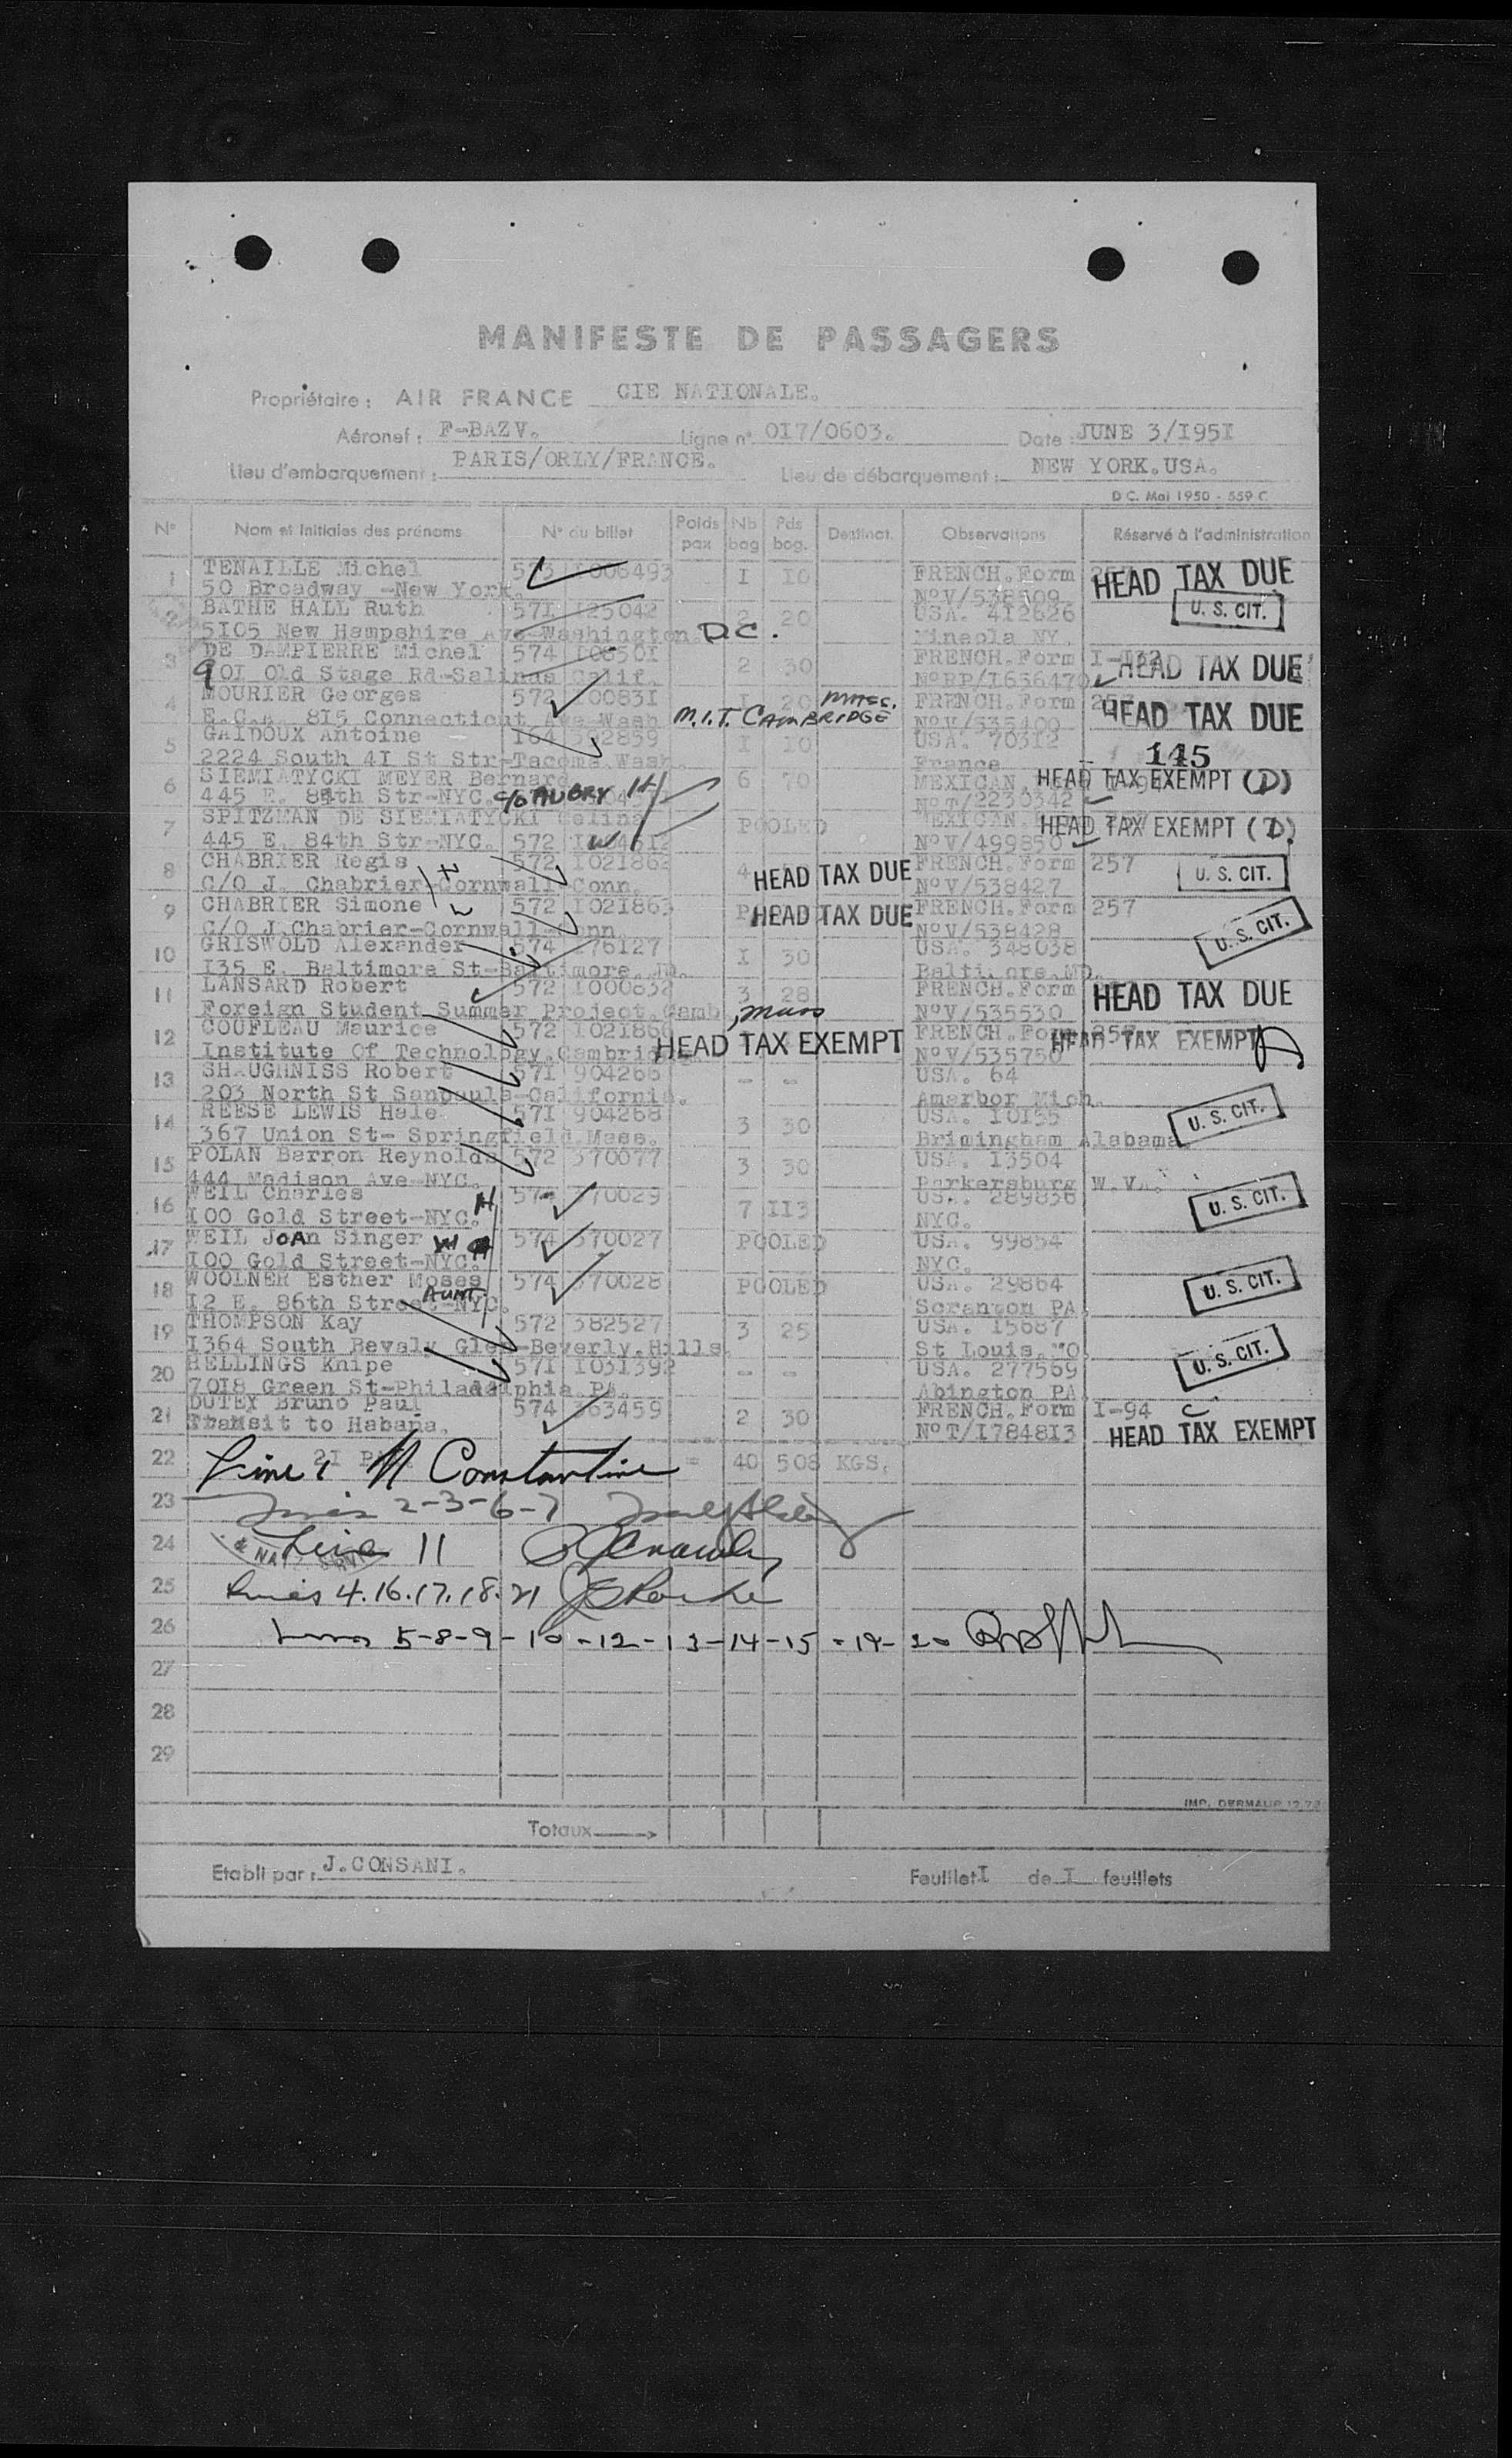 MANIFESTE DE PASSAGERS
Propriétaire : AIR FRANCE CIE NATIONALE.
Aéronef : F-BAZV. Ligne n° 0I7/0603. Date : JUNE 3/I95I
Lieu d'embarquement : PARIS/ORLY/FRANCE. Lieu de débarquement : NEW YORK.USA.
D C. Mai 1950 - 559 C
N° Nom et initiales des prénoms N° du billet Poids pax Nb bag Pds bag. Destinat. Observations Réservé à l'administration
1 TENAILLE Michel I I0 FRENCH.Form 257 HEAD TAX DUE
50 Broadway -New York. N°V/538509
2 BATHE HALL Ruth 57I I25042 2 20 USA. 412626 U. S. CIT.
5I05 New Hampshire Ave-Washington D.C. Mineola NY.
3 DE DAMPIERRE Michel 574 I0850I 2 30 FRENCH.Form I-I32 HEAD TAX DUE
90I Old Stage Rd-Salinas Calif. N°RP/I656470
4 MOURIER Georges 572 I0083I I 20 MASS. FRENCH.Form 257 HEAD TAX DUE
E.C.A. 8I5 Connecticut Ave-Wash M.I.T. CAMBRIDGE N°V/535400
5 GAIDOUX Antoine I64 I I0 USA. 703I2 145
2224 South 4I St Str-Tacoma.Wash. France
6 SIEMIATYCKI MEYER Bernard 6 70 MEXICAN. HEAD TAX EXEMPT (D)
445 E. 84th Str-NYC. C/O AUBRY H N°T/2230342
7 SPITZMAN DE SIEMIATYCKI Celina POOLED MEXICAN. HEAD TAX EXEMPT (D)
445 E. 84th Str-NYC. 572 W N°V/499850
8 CHABRIER Regis H 572 I02I862 4 HEAD TAX DUE FRENCH.Form 257 U. S. CIT.
C/O J. Chabrier-Cornwall-Conn. N°V/538427
9 CHABRIER Simone W 572 I02I863 HEAD TAX DUE FRENCH.Form 257
C/O J.Chabrier-Cornwall-Conn. N°V/538428 U. S. CIT.
10 GRISWOLD Alexander 574 I76I27 I 30 USA. 348038
I35 E. Baltimore St-Baltimore. MD. Baltimore.MD.
11 LANSARD Robert 572 I000832 3 28 FRENCH.Form HEAD TAX DUE
Foreign Student Summer Project.Camb, Mass N°V/535530
12 COUFLEAU Maurice 572 I02I866 HEAD TAX EXEMPT FRENCH.Form 257 HEAD TAX EXEMPT D
Institute Of Technology.Cambridge N°V/535750
13 SHAUGHNISS Robert 57I 904266 - - USA. 64
203 North St Sanpaula-California. Amarbor Mich.
14 REESE LEWIS Hale 57I 904268 3 30 USA. I0I35 U. S. CIT.
367 Union St- Springfield.Mass. Brimingham Alabama.
15 POLAN Barron Reynolds 572 370077 3 30 USA. I3504
444 Madison Ave-NYC. Parkersburg W.VA.
16 WEIL Charles H 574 370029 7 II3 USA. 289836 U. S. CIT.
I00 Gold Street-NYC. NYC.
17 WEIL JOAn Singer W 574 370027 POOLED USA. 99854
I00 Gold Street-NYC. NYC.
18 WOOLNER Esther Moses 574 370028 POOLED USA. 29864 U. S. CIT.
I2 E. 86th Street-NYC. AUNT Scranton PA.
19 THOMPSON Kay 572 382527 3 25 USA. I5687
I364 South Bevaly Glen-Beverly.Hills. St Louis. MO. U. S. CIT.
20 HELLINGS Knipe 57I I03I392 - - USA. 277569
70I8 Green St-Philadelphia PA. Abington PA.
21 DUTEY Bruno Paul 574 363459 2 30 FRENCH.Form I-94 C
Transit to Habana. N°T/I7848I3 HEAD TAX EXEMPT
22 2I P = 40 508 KGS.
Line 1 M Constantine
23 Lines 2-3-6-7
24 Line 11
25 Lines 4.16.17.18.21
26 Lines 5-8-9-10-12-13-14-15-19-20
27
28
29
IMP. DERMAUR
Totaux
Etabli par : J.CONSANI. Feuillet I de I feuillets